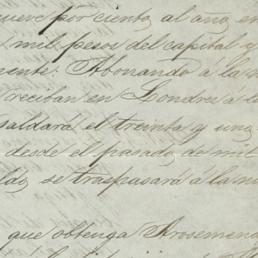 nueve por ciento al año en
mil pesos del capital y
mente: Abonando á la
reciban en Londres á l
saldará el treinta y uno
desde el pasado de mil
ldo se traspasará á la nu
que obtenga Arosemena